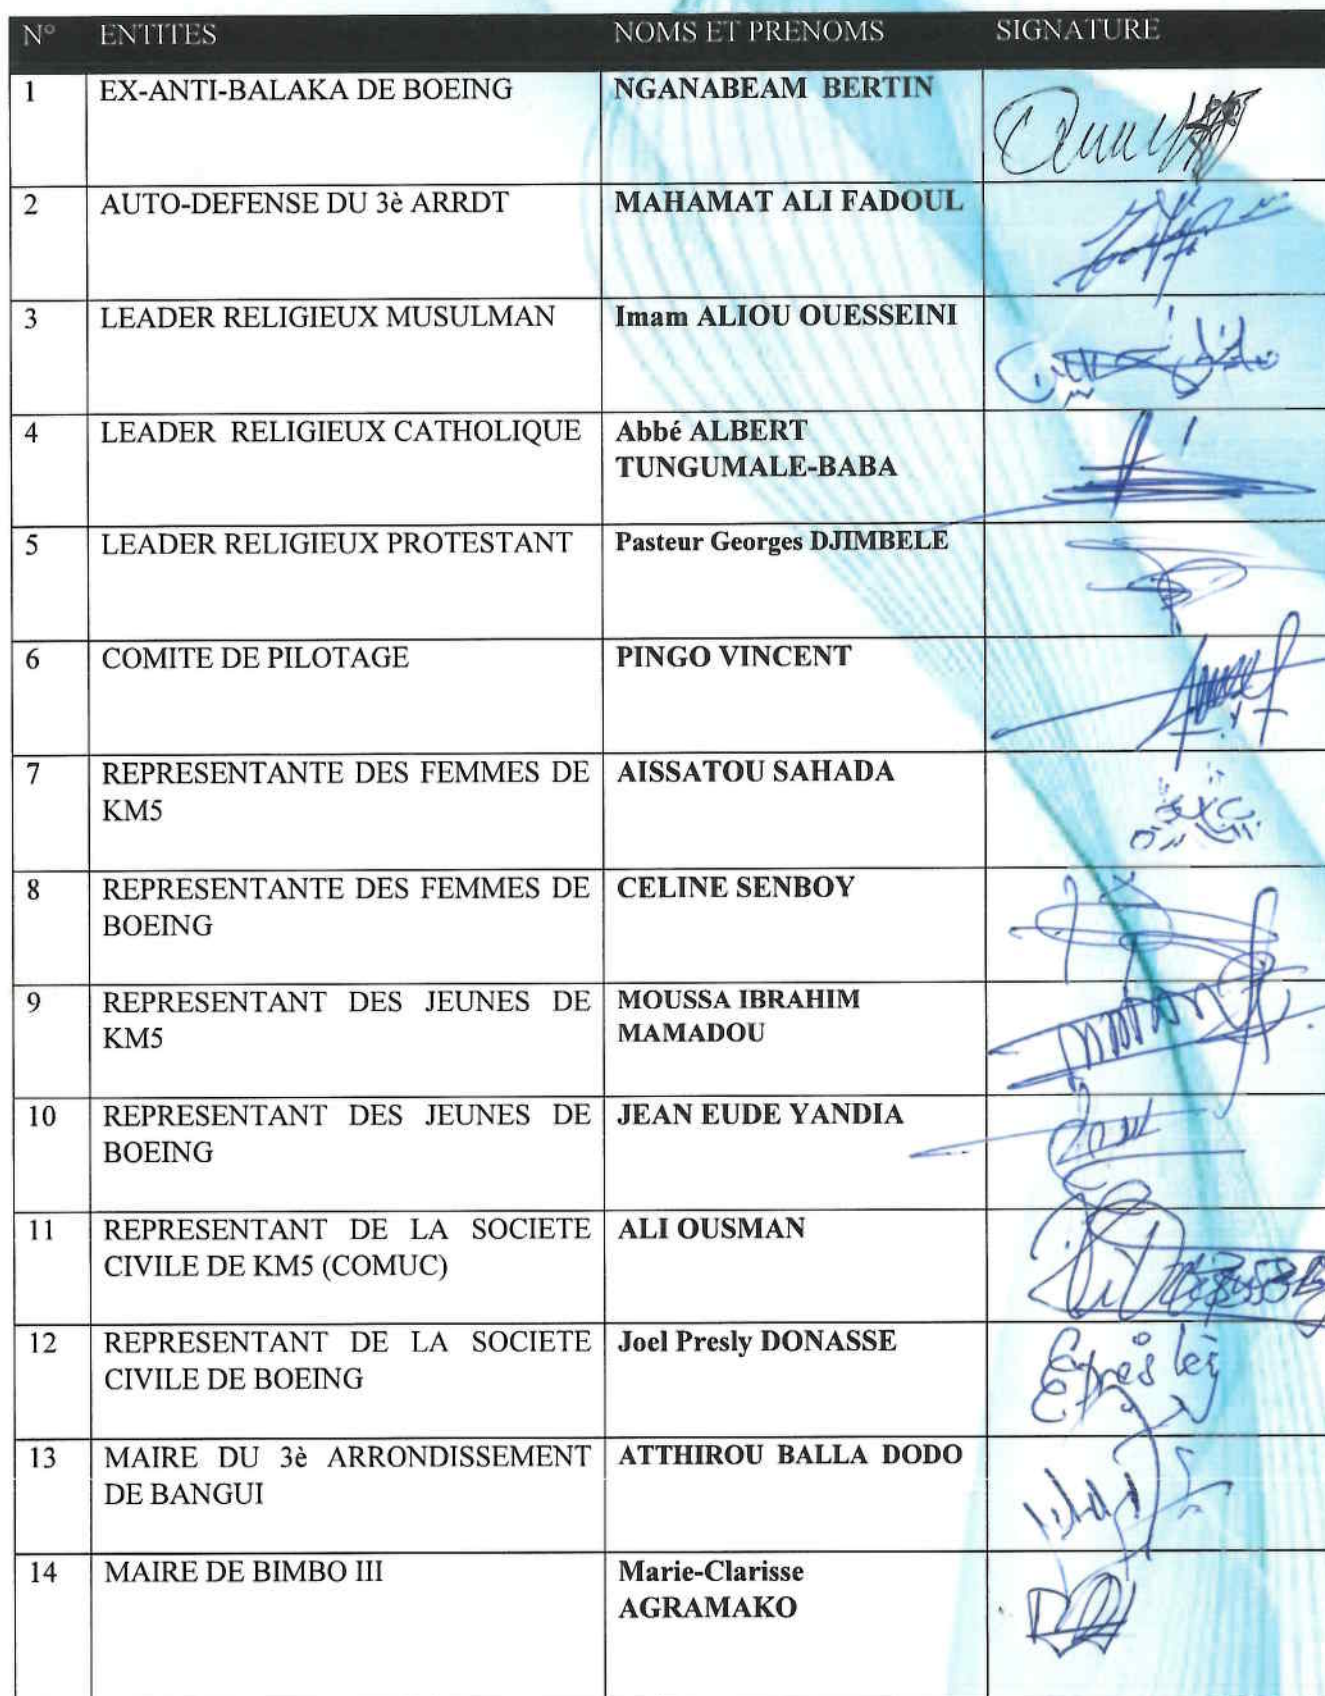 N° ENTITES NOMS ET PRENOMS SIGNATURE
1 EX-ANTI-BALAKA DE BOEING NGANABEAM BERTIN
2 AUTO-DEFENSE DU 3è ARRDT MAHAMAT ALI FADOUL
3 LEADER RELIGIEUX MUSULMAN Imam ALIOU OUESSEINI
4 LEADER RELIGIEUX CATHOLIQUE Abbé ALBERT
TUNGUMALE-BABA
5 LEADER RELIGIEUX PROTESTANT Pasteur Georges DJIMBELE
6 COMITE DE PILOTAGE PINGO VINCENT
7 REPRESENTANTE DES FEMMES DE AISSATOU SAHADA
KM5
8 REPRESENTANTE DES FEMMES DE CELINE SENBOY
BOEING
9 REPRESENTANT DES JEUNES DE MOUSSA IBRAHIM
KM5 MAMADOU
10 REPRESENTANT DES JEUNES DE JEAN EUDE YANDIA
BOEING
11 REPRESENTANT DE LA SOCIETE ALI OUSMAN
CIVILE DE KM5 (COMUC)
12 REPRESENTANT DE LA SOCIETE Joel Presly DONASSE
CIVILE DE BOEING
13 MAIRE DU 3è ARRONDISSEMENT ATTHIROU BALLA DODO
DE BANGUI
14 MAIRE DE BIMBO III Marie-Clarisse
AGRAMAKO